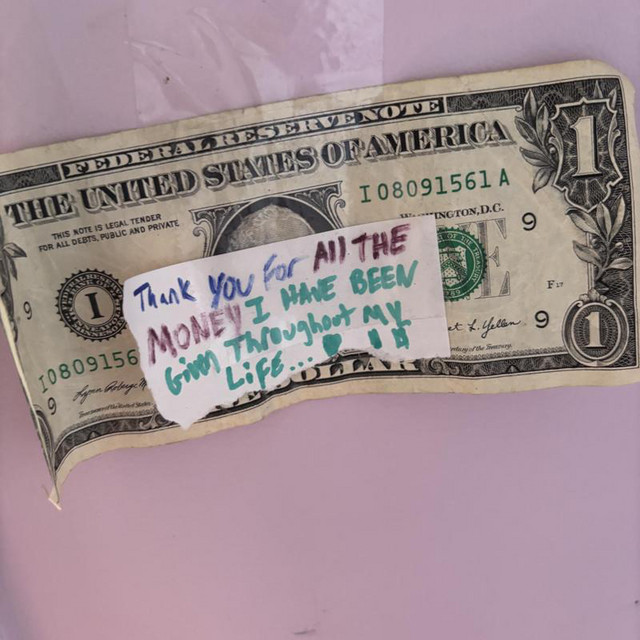 FEDERAL RESERVE NOTE
THE UNITED STATES OF AMERICA
I 08091561 A
THIS NOTE IS LEGAL TENDER
FOR ALL DEBTS, PUBLIC AND PRIVATE
WASHINGTON, D.C.
1
9
9
I
F
9
9
1
I 0809156
Thank YOU FOR All THE
MONEY I HAVE BEEN
Given Throughout My
LiFE...
DOLLAR